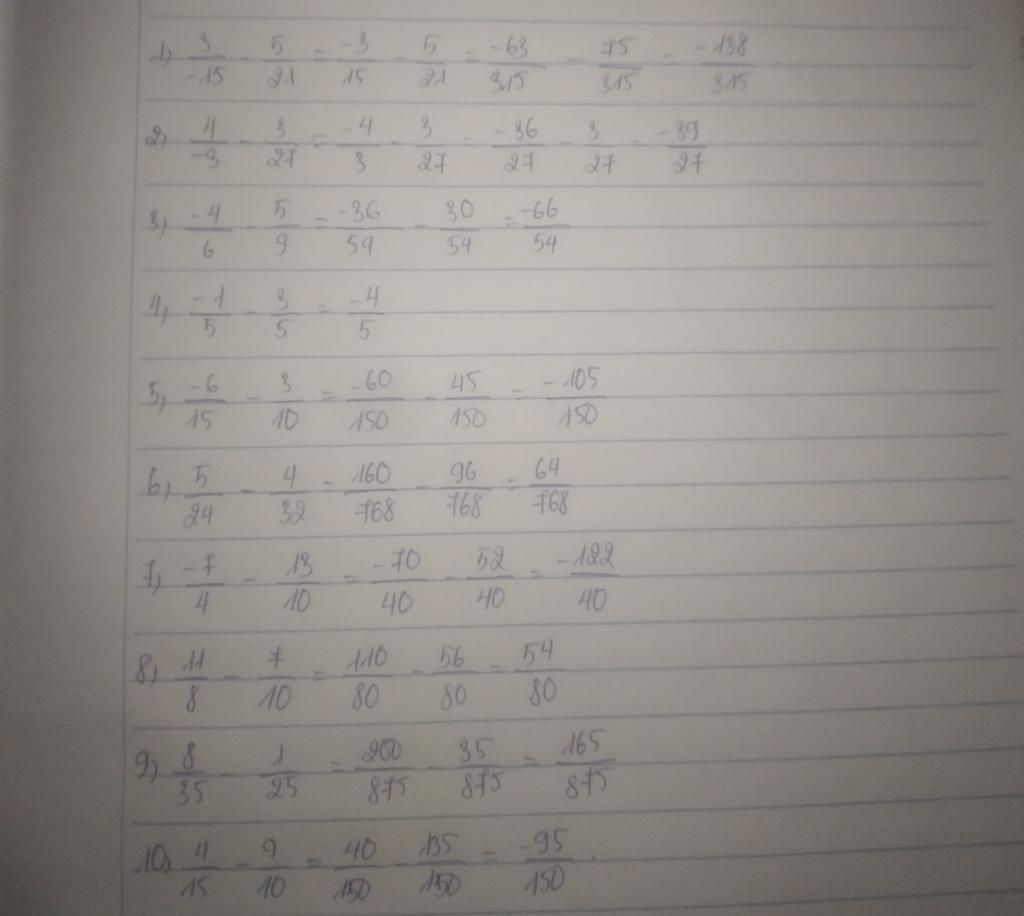 1) 3/-15 - 5/21 = -3/15 - 5/21 = -63/315 - 75/315 = -138/315.
2) 4/-3 - 3/27 = -4/3 - 3/27 = -36/27 - 3/27 = -39/27
3) -4/6 - 5/9 = -36/54 - 30/54 = -66/54
4) -1/5 - 3/5 = -4/5
5) -6/15 - 3/10 = -60/150 - 45/150 = -105/150
6) 5/24 - 4/32 = 160/768 - 96/768 = 64/768
7) -7/4 - 13/10 = -70/40 - 52/40 = -122/40
8) 11/8 - 7/10 = 110/80 - 56/80 = 54/80
9) 8/35 - 1/25 = 200/875 - 35/875 = 165/875
10) 4/15 - 9/10 = 40/150 - 135/150 = -95/150.